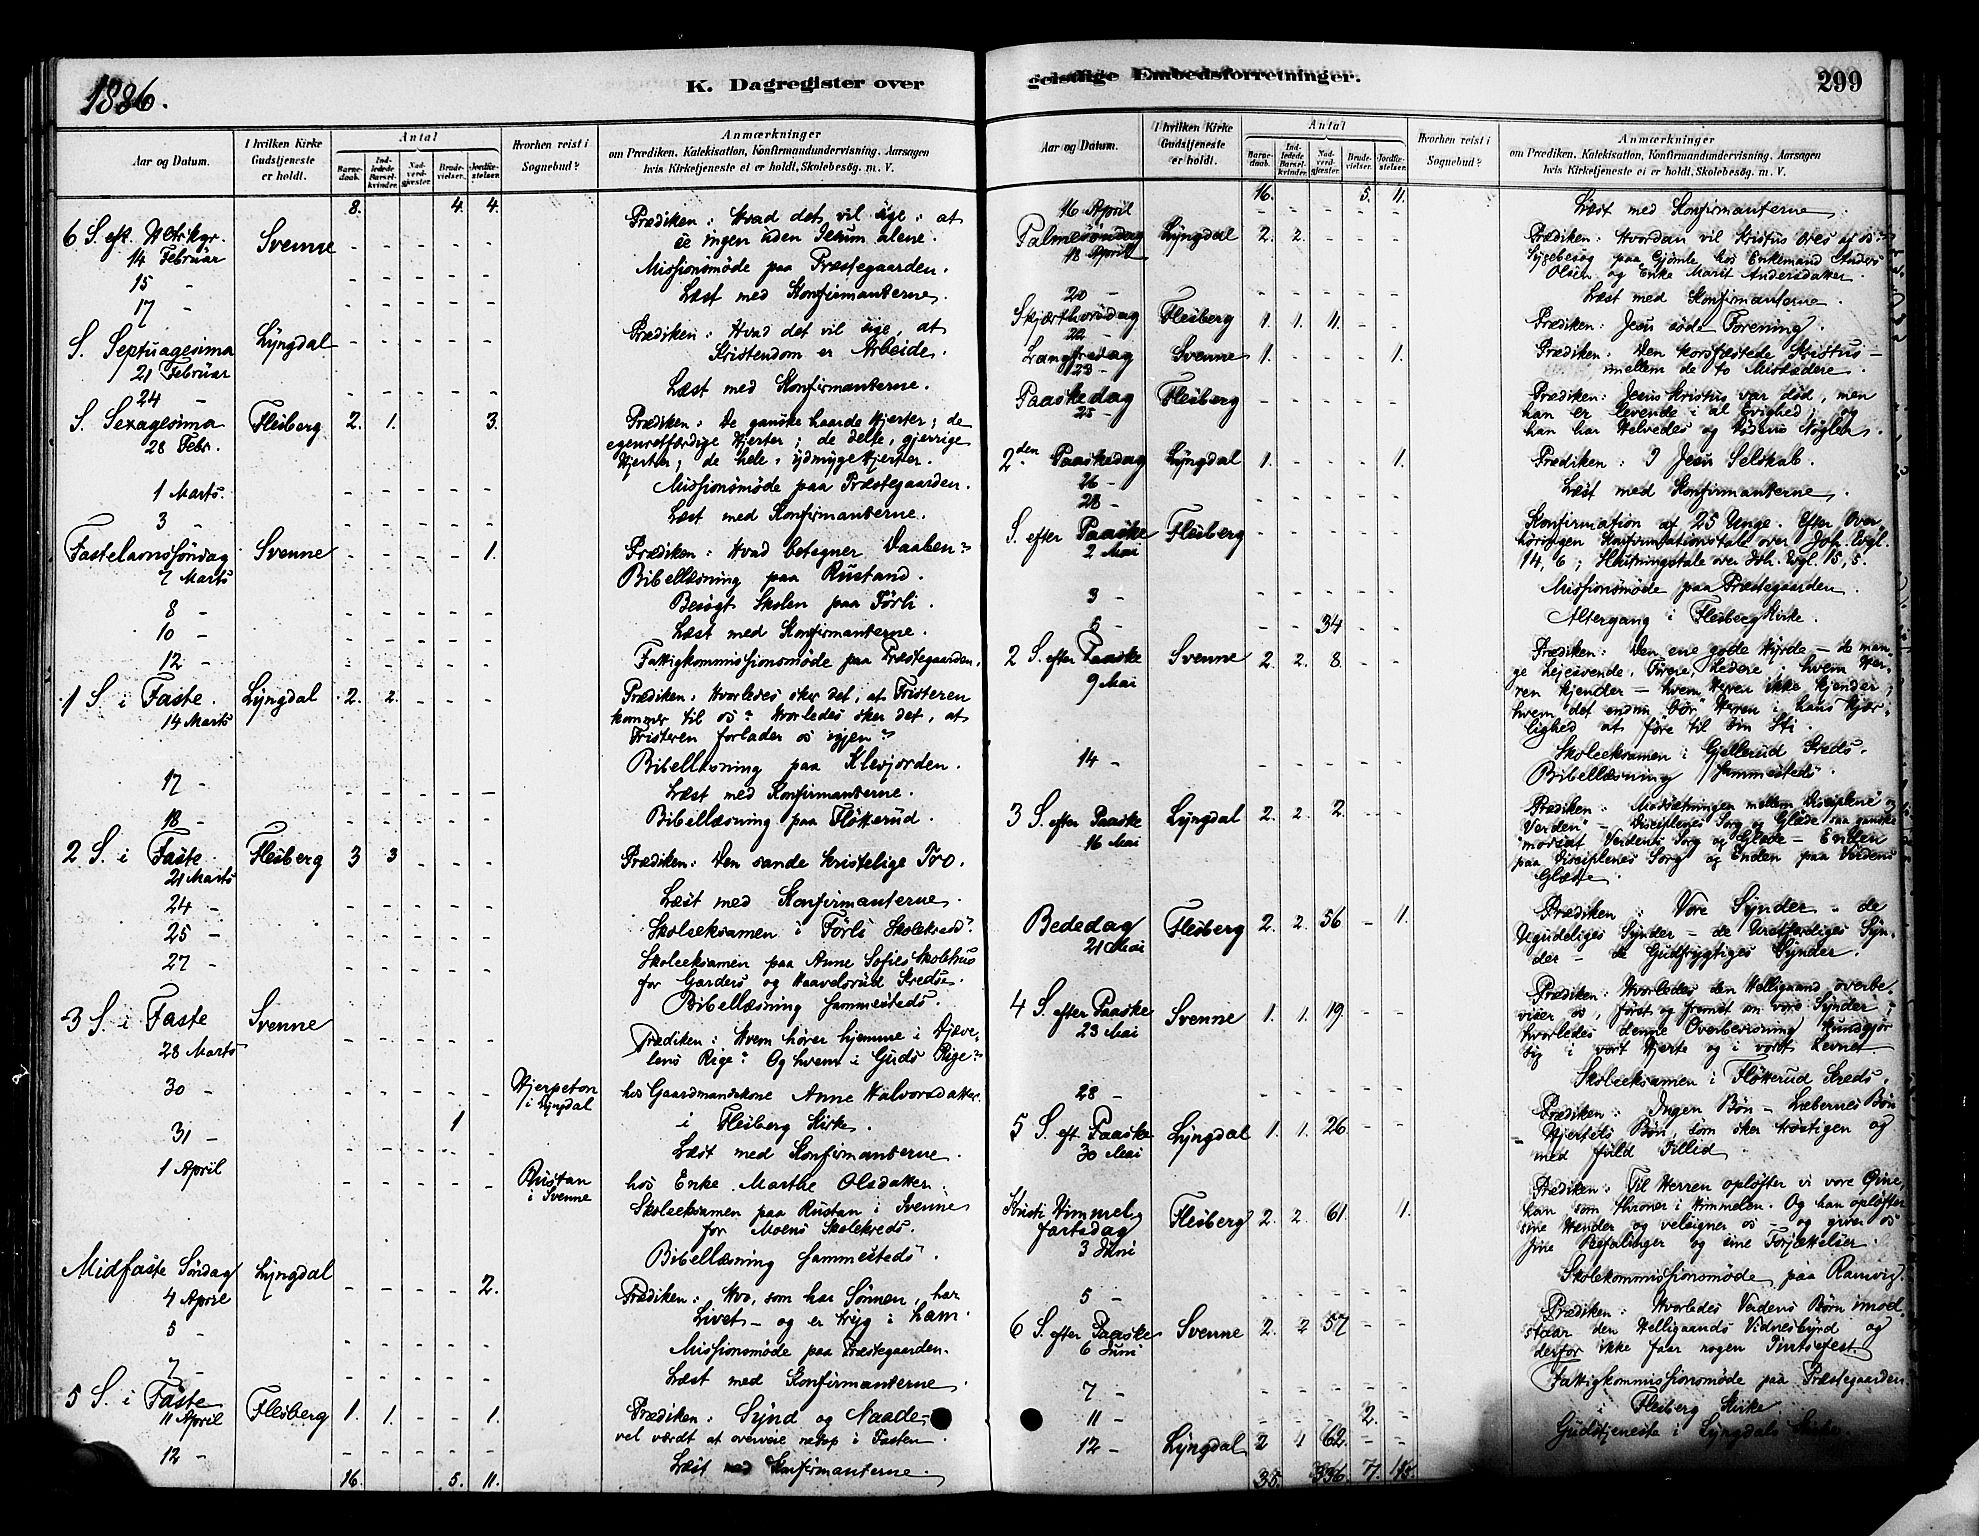 1886.
K. Dagregister over
Aar og Datum.
I hvilken Kirke Gudstjeneste er holdt.
Antal
Barnedaab.
Indledede Barselkvinder.
Nadverdgjæster.
Brudevielser.
Jordfæstelser.
Hvorhen reist i Sognebud?
Anmærkninger
om Prædiken, Katekisation, Konfirmandundervisning, Aarsagen
hvis Kirketjeneste ei er holdt, Skolebesøg. m. V.
8. 4. 4.
6 S. eft. Hetrkgr. Svenne - - - - - Prædiken: Hvad det vil sige: at
14 Februar se ingen uden Jesum alene.
15 - - - - - - Missionsmøde paa Præstegaarden.
17 - - - - - - Læst med Konfirmanterne.
S. Septuagesima Lyngdal - - - - - Prædiken: Hvad det vil sige, at
21 Februar Kristendom er Arbeide.
24 - - - - - - Læst med Konfirmanterne.
S. Sexagesima Flesberg 2. 1. 3. Prædiken: De ganske haarde Hjerter; de
28 Febr. egenretfærdige Hjerter; de delte, gjerrige
Hjerter; de hele, ydmyge Hjerter.
1 Marts. - - - - - Missionsmøde paa Præstegaarden.
3 - - - - - - Læst med Konfirmanterne.
Fastelavnssøndag Svenne - - - - 1. Prædiken: Hvad betegner Daaben?
7 Marts Bibellæsning paa Rustand.
8 - - - - - - Besøgt Skolen paa Førli.
10 - - - - - - Læst med Konfirmanterne.
12 - - - - - - Fattigkommissionsmøde paa Præstegaarden.
1 S. i Faste. Lyngdal 2. 2. - - - Prædiken: Hvorledes sker det, at Fristeren
14 Marts kommer til os? Hvorledes sker det, at
Fristeren forlader os igjen?
Bibellæsning paa Klevjorden.
17 - - - - - - Læst med Konfirmanterne.
18 - - - - - - Bibellæsning paa Fløtterud.
2 S. i Faste. Flesberg 3 3 - - - Prædiken: Den sande kristelige Tro.
21 Marts
24 - - - - - - Læst med Konfirmanterne.
25 - - - - - - Skoleeksamen i Førli Skolekreds.
27 - - - - - - Skoleeksamen paa Anne Sofies Skolehus
for Gaarders og Haavdsrud Kredse.
Bibellæsning sammesteds.
3 S. i Faste Svenne - - - - - Prædiken: Hvem hører hjemme i Djæve-
28 Marts lens Rige? Og hvem i Guds Rige?
30 - - - - - - Hjerpeton i Lyngdal hos Gaardmandskone Anne Halvorsdatter.
31 - 1 i Flesberg Kirke.
1 April - - - - - Læst med Konfirmanterne.
- - - - - Rustan i Svenne hos Enke Marthe Olsdatter.
Skoleeksamen paa Rustan i Svenne
for Moens Skolekreds.
Bibellæsning sammesteds.
Midfaste Søndag Lyngdal - - - - 2. Prædiken: Hvo, som har Sønnen, har
4 April Livet - og er tryg i ham.
5 - - - - - - Missionsmøde paa Præstegaarden.
7 - - - - - - Læst med Konfirmanterne.
5 S. i Faste Flesberg 1. 1. - - 1. Prædiken: Synd og Naade,
11 April vel værdt at overveie netop i Fasten.
12 - - - - - - Læst med Konfirmanterne.
16. 5. 11.
geistlige Embedsforretninger.
299
Aar og Datum.
I hvilken Kirke Gudstjeneste er holdt.
Antal
Barnedaab.
Indledede Barselkvinder.
Nadverdgjæster.
Brudevielser.
Jordfæstelser.
Hvorhen reist i Sognebud?
Anmærkninger
om Prædiken, Katekisation, Konfirmandundervisning, Aarsagen
hvis Kirketjeneste ei er holdt, Skolebesøg. m. V.
16. 5. 11.
16 April - - - - - Læst med Konfirmanterne.
Palmesøndag Lyngdal 2. 2. - - - Prædiken: Hvordan vil Kristus æres af os?
18 April Sygebesøg paa hos Enkemand Anders
Olsen og Enke Marit Andersdatter.
20 - - - - - - Læst med Konfirmanterne.
Skjærthorsdag Flesberg 1. 1. 11. - - Prædiken: Jesu søde Forening.
22 -
Langfredag Svenne 1. - - - 1. Prædiken: Den korsfæstede Kristus -
23 - mellem de to Misdædere.
Paaskedag Flesberg - - - - - Prædiken: Jesus Kristus var død, men
25 - han er levende i al Evighed, og
han har Helvedes og Dødens Nøgler.
2den Paaskedag Lyngdal 1. - - - 1. Prædiken: I Jesu Selskab.
26 -
28 - - - - - - Læst med Konfirmanterne.
S. efter Paaske Flesberg - - - - - Konfirmation af 25 Unge. Efter Over-
2. Mai høringen Konfirmationstale over Joh. Evgl.
14, 6; Slutningstale over Joh. Evgl. 15, 5.
3 - - - - - - Missionsmøde paa Præstegaarden.
5 - - - 34 - - Altergang i Flesberg Kirke.
2 S. efter Paaske Svenne 2. 2. 8. - - Prædiken: Den ene gode Hyrde - de man-
9 Mai ge Leiesvende. Førere, Ledere; hvem Her-
ren kjender - hvem Herren ikke kjender;
hvem det endnu bør Herren i hans Kjær-
lighed at føre til sin Sti.
14 - - - - - - Skoleeksamen i Gjellerud Kreds.
Bibellæsning sammesteds.
3 S. efter Paaske Lyngdal 2. 2. 2. - - Prædiken: Modsætningen mellem Disciplene og
16 Mai Verden - Disciplenes Sorg og Glæde saa ganske
modsat Verdens Sorg og Glæde - Enden
paa Disciplenes Sorg og Enden paa Verdens
Glæde.
Bededag Flesberg 2. 2. 56 - 1. Prædiken: Vore Synder - de
21 Mai Ugudeliges Synder - de Uretfærdiges Syn-
der - de Gudfrygtiges Synder.
4 S. efter Paaske Svenne 1. 1. 19 - - Prædiken: Hvorledes den Helligaand overbe-
23 Mai viser os, først og fremst om vore Synder;
hvorledes denne Overbevisning kundgjør
sig i vort Hjerte og i vort Levnet.
28 - - - - - - Skoleeksamen i Fløtterud Kreds.
5 S. eft. Paaske Lyngdal 1. 1. 26 - - Prædiken: Ingen Bøn - Læbernes Bøn
30 Mai - Hjertets Bøn, som sker trøstigen og
med fuld Tillid.
Kristi Himmel- Flesberg 2. 2. 61. 1. Prædiken: Til Herren opløfter vi vore Øine,
fartsdag han som throner i Himmelen. Og han opløfter
3 Juni sine Hænder og velsigner os - og giver os
sine Befalinger og sine Forjættelser.
5 - - - - - - Skolekommissionsmøde paa Ramvig.
6 S. efter Paaske Svenne 2. 2 57 - - Prædiken: Hvorledes Verdens Børn imod-
6 Juni staar den Helligaands Vidnesbyrd og
derfor ikke faar nogen Pintsefest.
7 - - - - - - Fattigkommissionsmøde paa Præstegaarden.
11 - - - - 2. - i Flesberg Kirke
12 - Lyngdal 2 1 62. - - Gudstjeneste i Lyngdals Kirke.
35. 336. 7. 15.